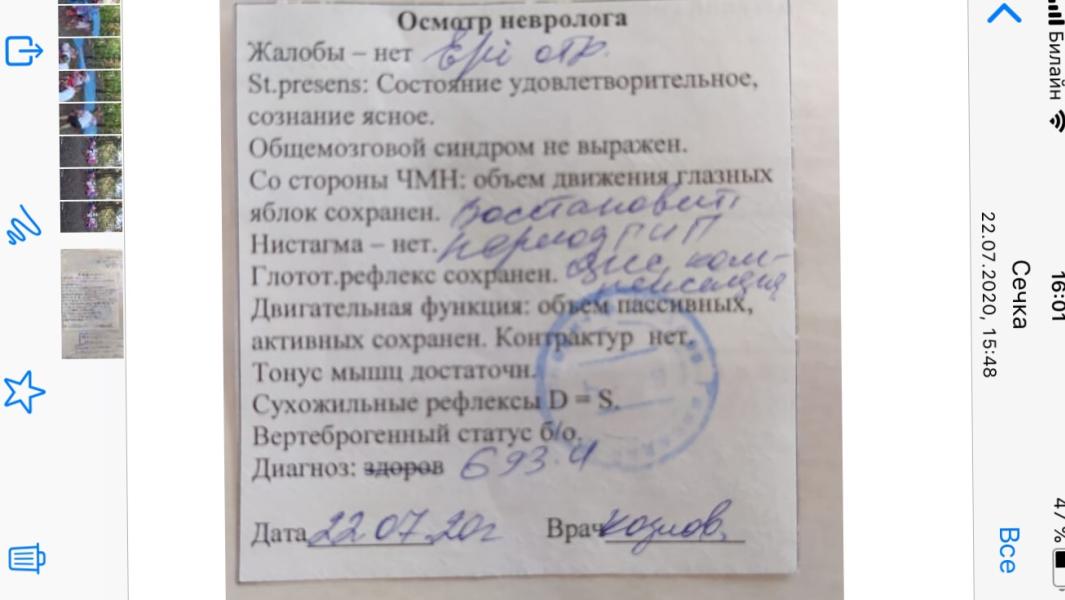 Осмотр невролога
Жалобы – нет Epi отр.
St.presens: Состояние удовлетворительное,
сознание ясное.
Общемозговой синдром не выражен.
Со стороны ЧМН: объем движения глазных
яблок сохранен. Восстановит.
Нистагма – нет. период ГИП
Глотот.рефлекс сохранен. ком-
пенсация
Двигательная функция: объем пассивных,
активных сохранен. Контрактур нет.
Тонус мышц достаточн.
Сухожильные рефлексы D = S.
Вертеброгенный статус б/о.
Диагноз: здоров G93.4
Дата 22.07.20г Врач Козлов
Билайн
16:01
47 %
Сечка
22.07.2020, 15:48
Все